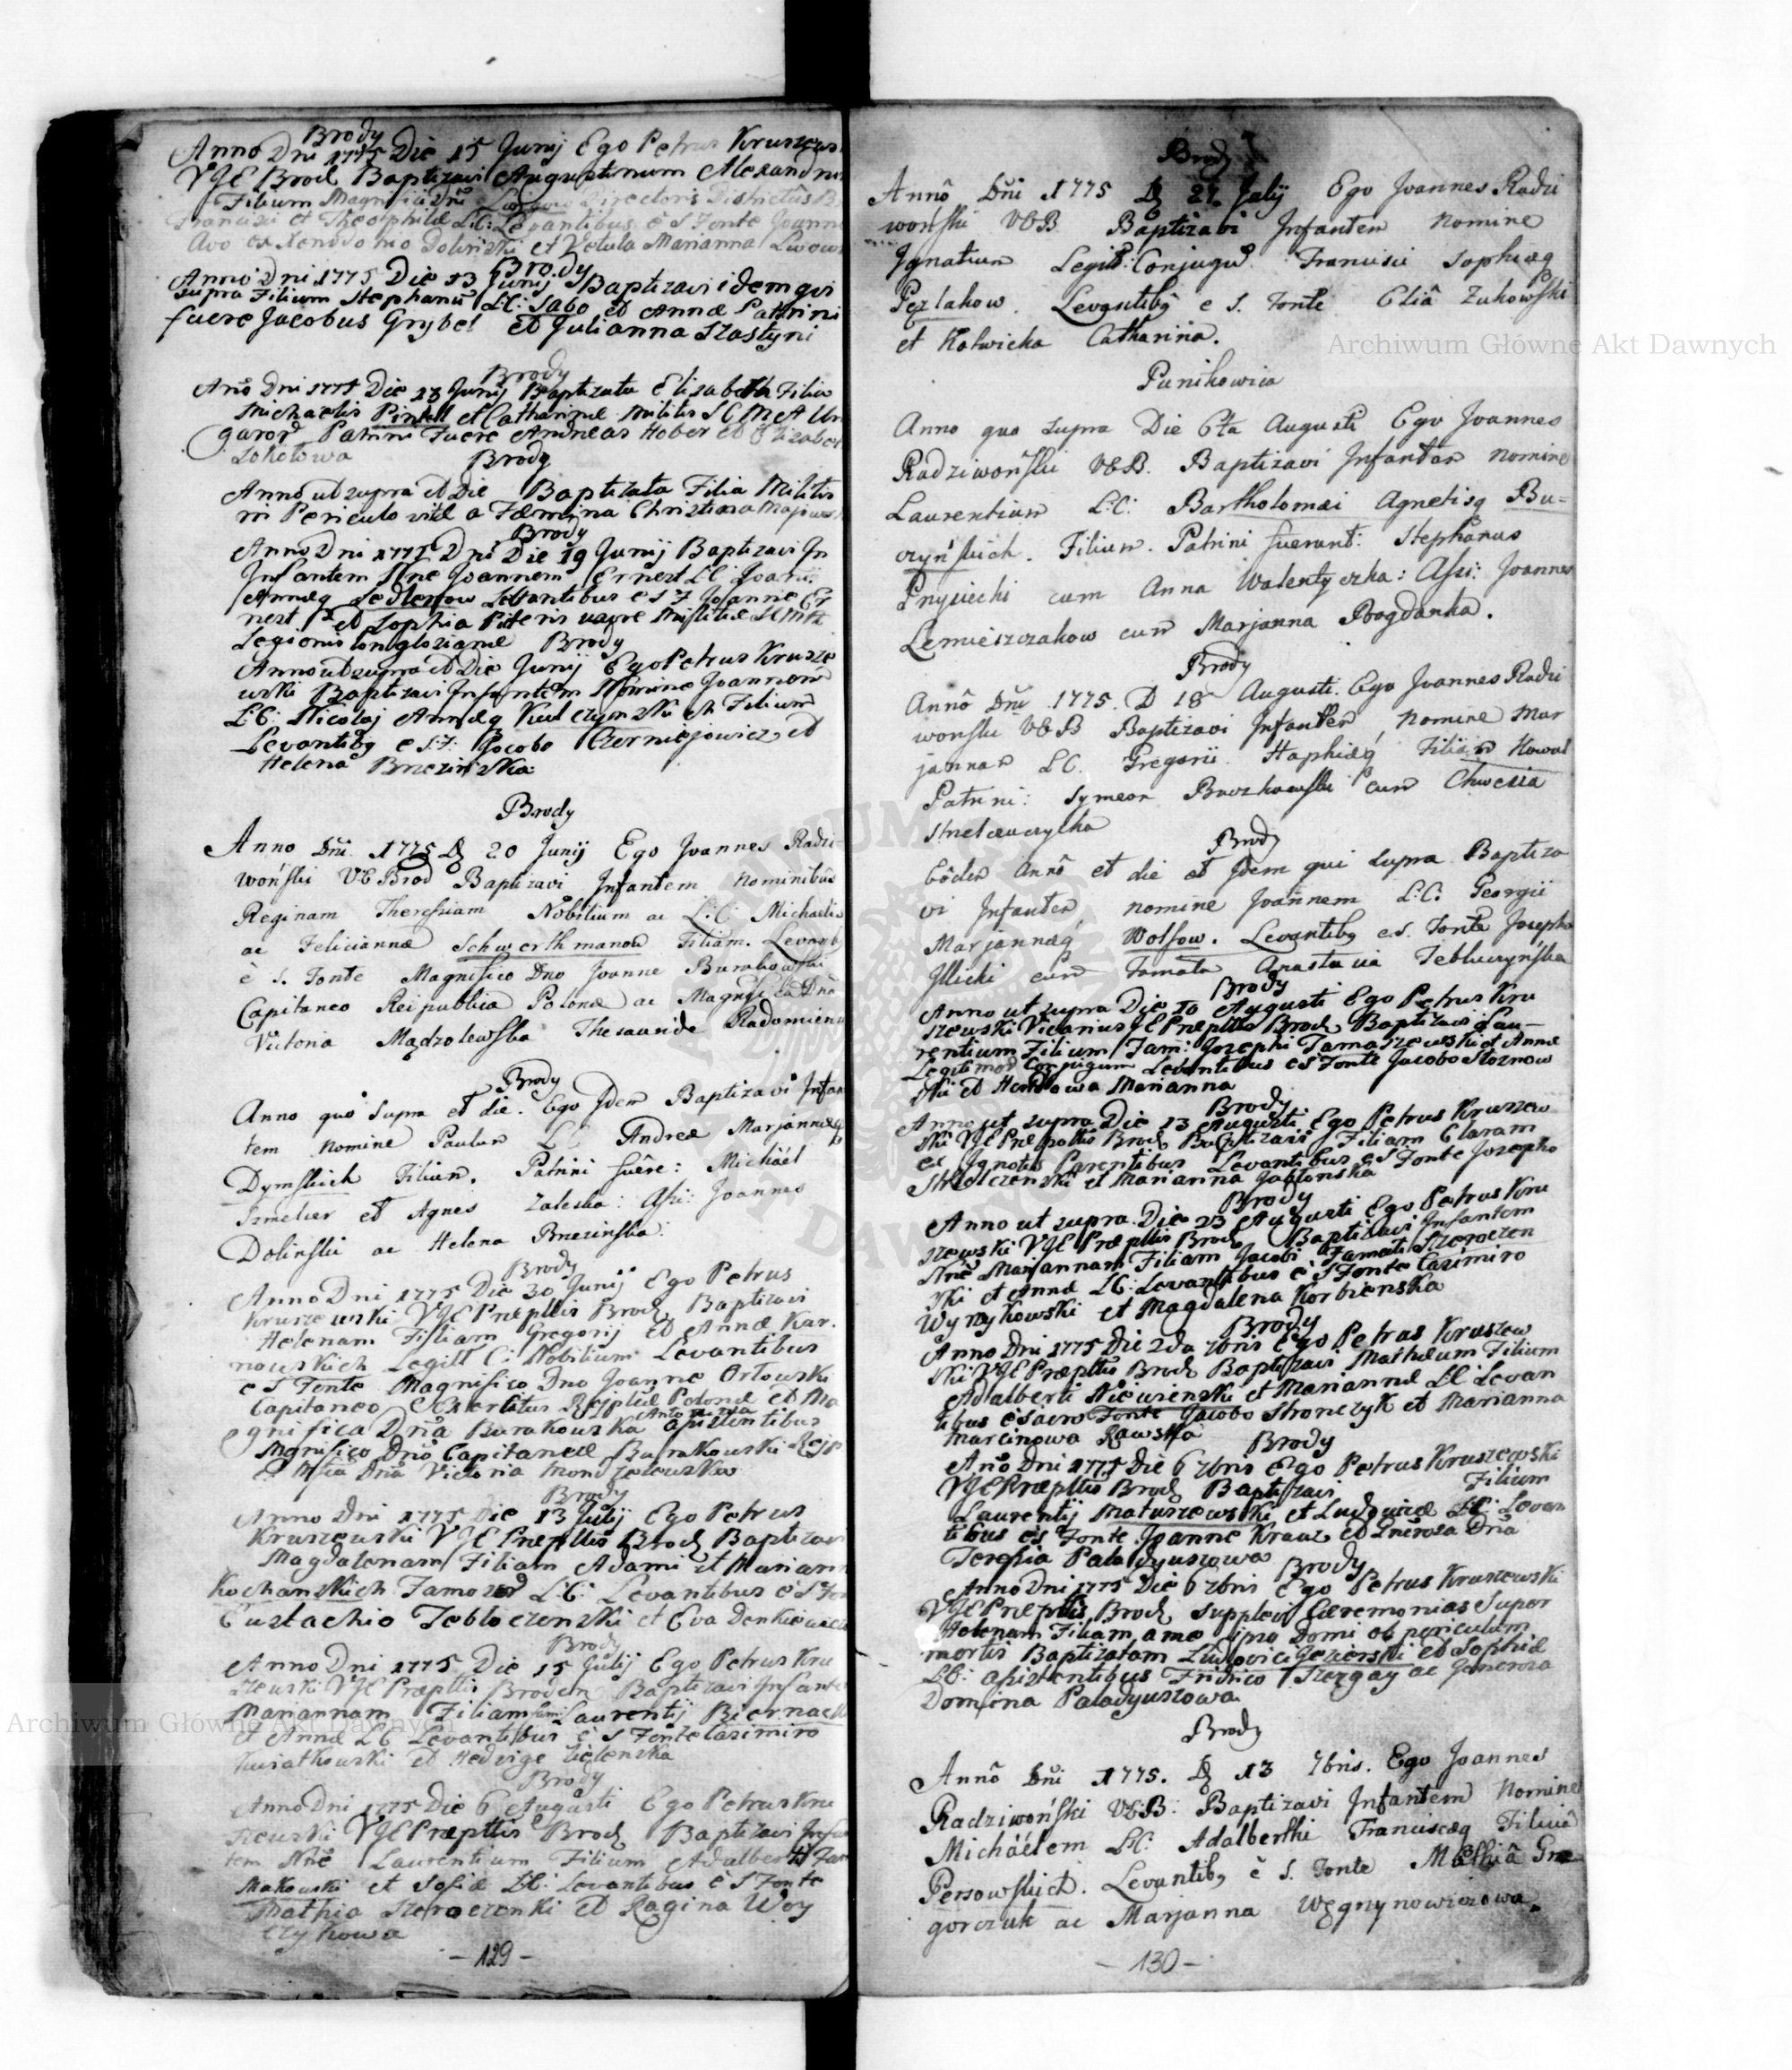 Brody
Anno Dni 1775 Die 15 Junij Ego Petrus Kruszews
VGE Brod Baptizavi Augustinum Alexandrum
Filium Magnifici Dni Directoris Districtus
Francisci et Theophilæ L:C: Levantibus è S Fonte Joanne
Avo ex Xenodochio Doliński et Vetula Marianna
Brody
Anno Dni 1775 Die 13 Junij Baptizavi idem qvi
supra Filium Stephanū L:C: Sabo et Annæ Patrini
fuere Jacobus Grybel et Julianna Szastyni
Brody
Año Dni 1775 Die 13 Junij Baptizata Elisabeth Filia
Michaelis Pintell et Catharinæ Militis S C M A Un
garor Patrini Fuere Andreas Hober et Elizabet
Sokolowa
Brody
Anno ut supra et Die Baptizata Filia Militis
in Periculo vitæ a Fæmina Christiana
Brody
Anno Dni 1775 Dni Die 19 Junij Baptizavi In
Infantem Nne Joannem Ernest L:C: Joañ:
Annæq Sedlerow Levantibus è S F Joanne Er
nest et Sophia
Legionis
Brody
Anno ut supra et Die Junij Ego Petrus Krusze
wski Baptizavi Infantem Nomine Joannem
L:C: Nicolaj Annæq Filium
Levantibq e S:F: Jacobo Czerniejowicz et
Helena Brzezinska
Brody
Anno Dñi 1775 D 20 Junij Ego Joannes Radzi-
woński VEBrod Baptizavi Infantem Nominibus
Reginam Theressiam Nobilium ac L:C: Michaelis
ac Feliciannæ Schwerthmanow Filiam. Levantib
è S. Fonte Magnifico Dno Joanne Burakowski
Capitaneo Reipublicæ Polonæ ac Magnifica Dna
Victoria Mądzolewska Thesauride Radomien
Brody
Anno quo supra et die. Ego Idem Baptizavi Infan
tem Nomine Paulum L:C: Andreæ Marjannæq
Dymskich Filium. Patrini fuêre: Michaël
Szmelcer et Agnes Zaleska: Assi: Joannes
Doliński ac Helena Brzezinska:
Brody
Anno Dni 1775 Die 30 Junij Ego Petrus
Kruszewski VGE Præpttis Brod Baptizavi
Helenam Filiam Gregorij et Annæ Kar.
nowskich Legitt C: Nobilium Levantibus
e S Fonte Magnifico Dno Joanne Orłowski
Capitaneo Exercitus Rejptcæ Polonæ et Ma
gnifica Dña Burakowska Antonina assistentibus
Magnifico Dno Capitaneo Burakowski Rejp
è Mtia Dña Victoria Mondzolewska
Brody
Anno Dni 1775 Die 13 Julij Ego Petrus
Kruszewski VGE Præpttis Brod Baptizavi
Magdalenam Filiam Adami et Mariann
Kochanskich Famosor L:C: Levantibus è S Fon
Eustachio Tebloczenski et Eva Denkiewicz
Brody
Anno Dni 1775 Die 15 Julij Ego Petrus Kru
szewski VGE Præpttis Broden Baptizavi Infante
Mariannam Filiam fam: Laurentij Biernack
et Annæ LC Levantibus è S Fonte Casimiro
Kwiatkowski et Hedvige Zielenska
Brody
Anno Dni 1775 Die 6 Augusti Ego Petrus Kru
szewski VGE Præpttis Brod Baptizavi Infan
tem Nne Laurentium Filium Adalberti Fam
Makowski et Sofiæ LC: Levantibus è S Fonte
Mathia Szeroczenki et Ragina Woy
czykowa
- 129 -
Brody
Annô Dñi 1775 D 27 Julij Ego Joannes Radzi
woński VEB Baptizavi Infantem Nomine
Ignatium Legit: Conjugū Francisci Sophiæq
Pezlakow. Levantibq e S. Fonte Eliâ Zukowski
et Kotwicka Catharina.
Punikowica
Anno quo supra Die 6ta Augusti Ego Joannes
Radziwoński VEB. Baptizavi Infantem nomine
Laurentium L:C: Bartholomæi Agnetisq Bu=
czyńskich. Filium. Patrini fuerunt: Stephanus
Przysiecki cum Anna Walentyczka: Assi: Joannes
Lemieszczakow cum Marjanna Bogdanka.
Brody
Annô Dñi 1775. D 18 Augusti. Ego Joannes Radzi
woński VEB Baptizavi Infantem Nomine Mar
jannam LC. Gregorii Haphiæq Filiam Kowal
Patrini: Symeon cum Chwesia
Brody
Eôdem Annô et die et Idem qui supra Baptiza
vi Infantem nomine Joannem L:C: Georgii
Marjannæq Wolfow. Levantibq e S. Fonte Josepho
Illicki cum famata Anastasia Tebluczyńska
Brody
Anno ut supra Die 10 Augusti Ego Petrus Kru
szewski Vicarius GE Præpttis Brod Baptizavi Lau-
rentium Filium Fam: Josephi Tomaszewski et Annæ
Legitimor Conjugum Levantibus è S Fonte Jacobo Stoznow
ski et Marianna
Brody
Anno ut supra Die 13 Augusti Ego Petrus Kruszew
ski VGE Præpositis Brod Baptizavi Filiam Claram
ex Ignotis Parentibus Levantibus e S Fonte Josepho
Strelczenski et Marianna Jabłonska
Brody
Anno ut supra Die 23 Augusti Ego Petrus Kru
szewski VGE Præpttis Brod Baptizavi Infantem
Nne Mariannam Filiam Jacobi Famati Szeroczen
ski et Annæ LC: Levantibus è S Fonte Casimiro
Wyrzykowski et Magdalena Korbienska
Brody
Anno Dni 1775 Die 2da 7bris Ego Petrus Kruszew
ski VGE Præpttis Brod Baptizavi Mathæum Filium
Adalberti Niewienski et Mariannæ LC Levan
tibus è Sacro Fonte Jacobo Stronczyk et Marianna
Marcinowa Rawska
Brody
Año Dni 1775 Die 6 7bris Ego Petrus Kruszewski
VGE Præpttis Brod Baptizavi Filium
Laurentij Matuszewski et Ludovicæ LC: Levan
tibus è S Fonte Joanne Krauz et Generosa Dña
Teressia Paladyuszowa
Brody
Anno Dni 1775 Die 6 7bris Ego Petrus Kruszewski
VGE Præpttis Brod supplevi Cæremonias super
Helenam Filiam a me ipso Domi ob periculum
mortis Baptizatam Ludovici Gezierski et Sophiæ
LC: assistentibus Fridrico Szezgay ac Generosa
Domina Paladyuszowa
Brody
Annô Dñi 1775. D 13 7bris. Ego Joannes
Radziwoński VEB: Baptizavi Infantem Nomine
Michäelem LC: Adalberthi Franciscæq Filium
Persowskich. Levantibq è S. Fonte Mathiâ Gre
gorczuk ac Marjanna Węgrzynowiczowa.
- 130 -
Archiwum Główne Akt Dawnych
Archiwum Główne Akt Dawnych